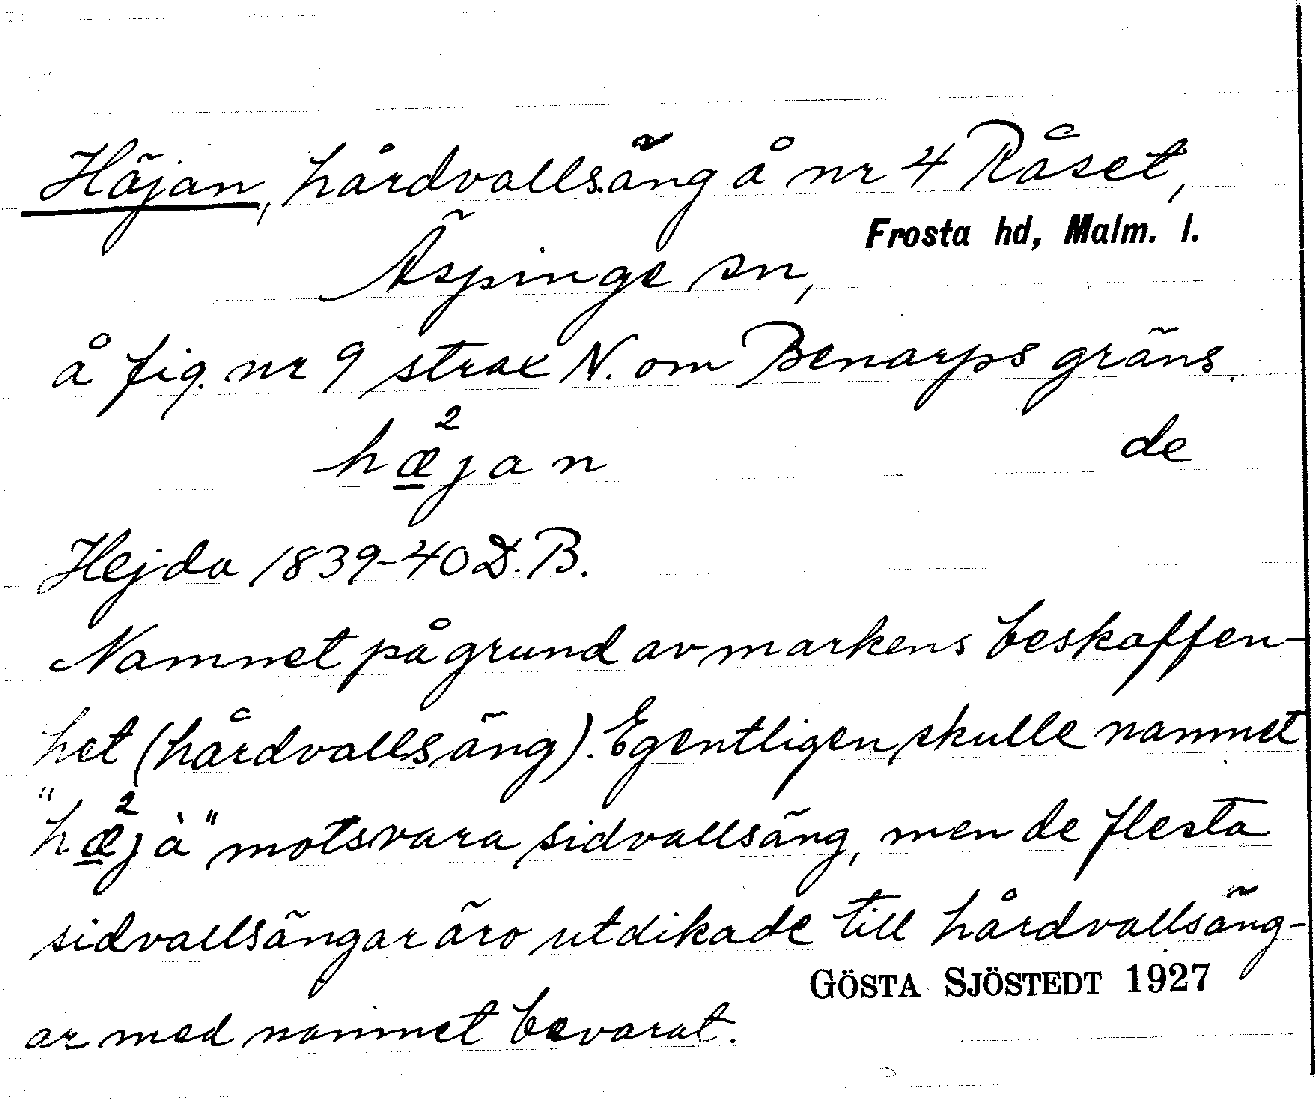 Häjan, hårdvallsäng å nr 4 Råset,
Frosta hd, Malm. l.
Äspinge sn,
å fig. nr 9 strax N. om Benarps gräns.
hæ²jan de
Hejda 1839-40 D.B.
Namnet på grund av markens beskaffen-
het (hårdvallsäng). Egentligen skulle namnet
"hæ²jà" motsvara sidvallsäng, men de flesta
sidvallsängar äro utdikade till hårdvallsäng-
GÖSTA SJÖSTEDT 1927
ar med namnet bevarat.